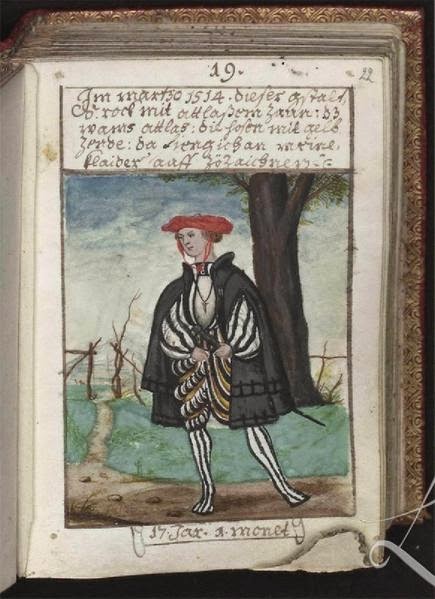 19.
22
Im martzo 1514. dieser gstalt,
rock mit attlaßem zaun: dz
wams attlas: die hosen mit gelb
zerde: da fieng ich an meine
klaider auff zözaichnen
17. Jar. 1. monet